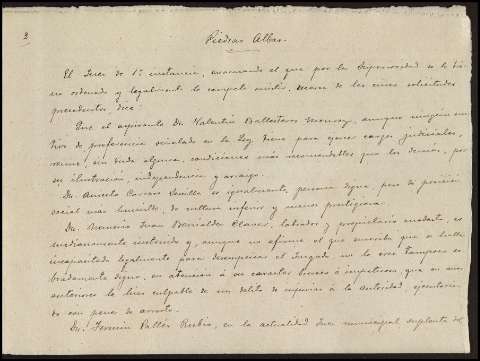 3
Piedras Albas.
El Juez de 1ª instancia, evacuando el que por la Superioridad se le tie-
ne ordenado y legalmente le compete emitir, acerca de las cinco solicitudes
precedentes, dice:
Que el aspirante Dn. Valentin Ballesteros, aunque ningún mo-
tivo de preferencia señalado en la Ley, tiene para ejercer cargos judiciales,
reune, sin duda alguna, condiciones más recomendables que los demás, por
su ilustración, independencia y arraigo.
Dn. es igualmente, persona digna, pero de posición
social mas humilde, de cultura inferior y menos prestigiosa.
Dn. labrador y propietario modesto, es
medianamente instruido y, aunque no afirme el que suscribe que se halla
incapacitado legalmente para desempeñar el Juzgado no lo cree tampoco so-
bradamente digno, en atención á su caracter é impetuoso, que en
anteriores le hizo culpable de un delito de injurias á la autoridad, ejecutoria-
do con pena de arresto.
Dn. Fermin Rubio, en la actualidad Juez municipal suplente del